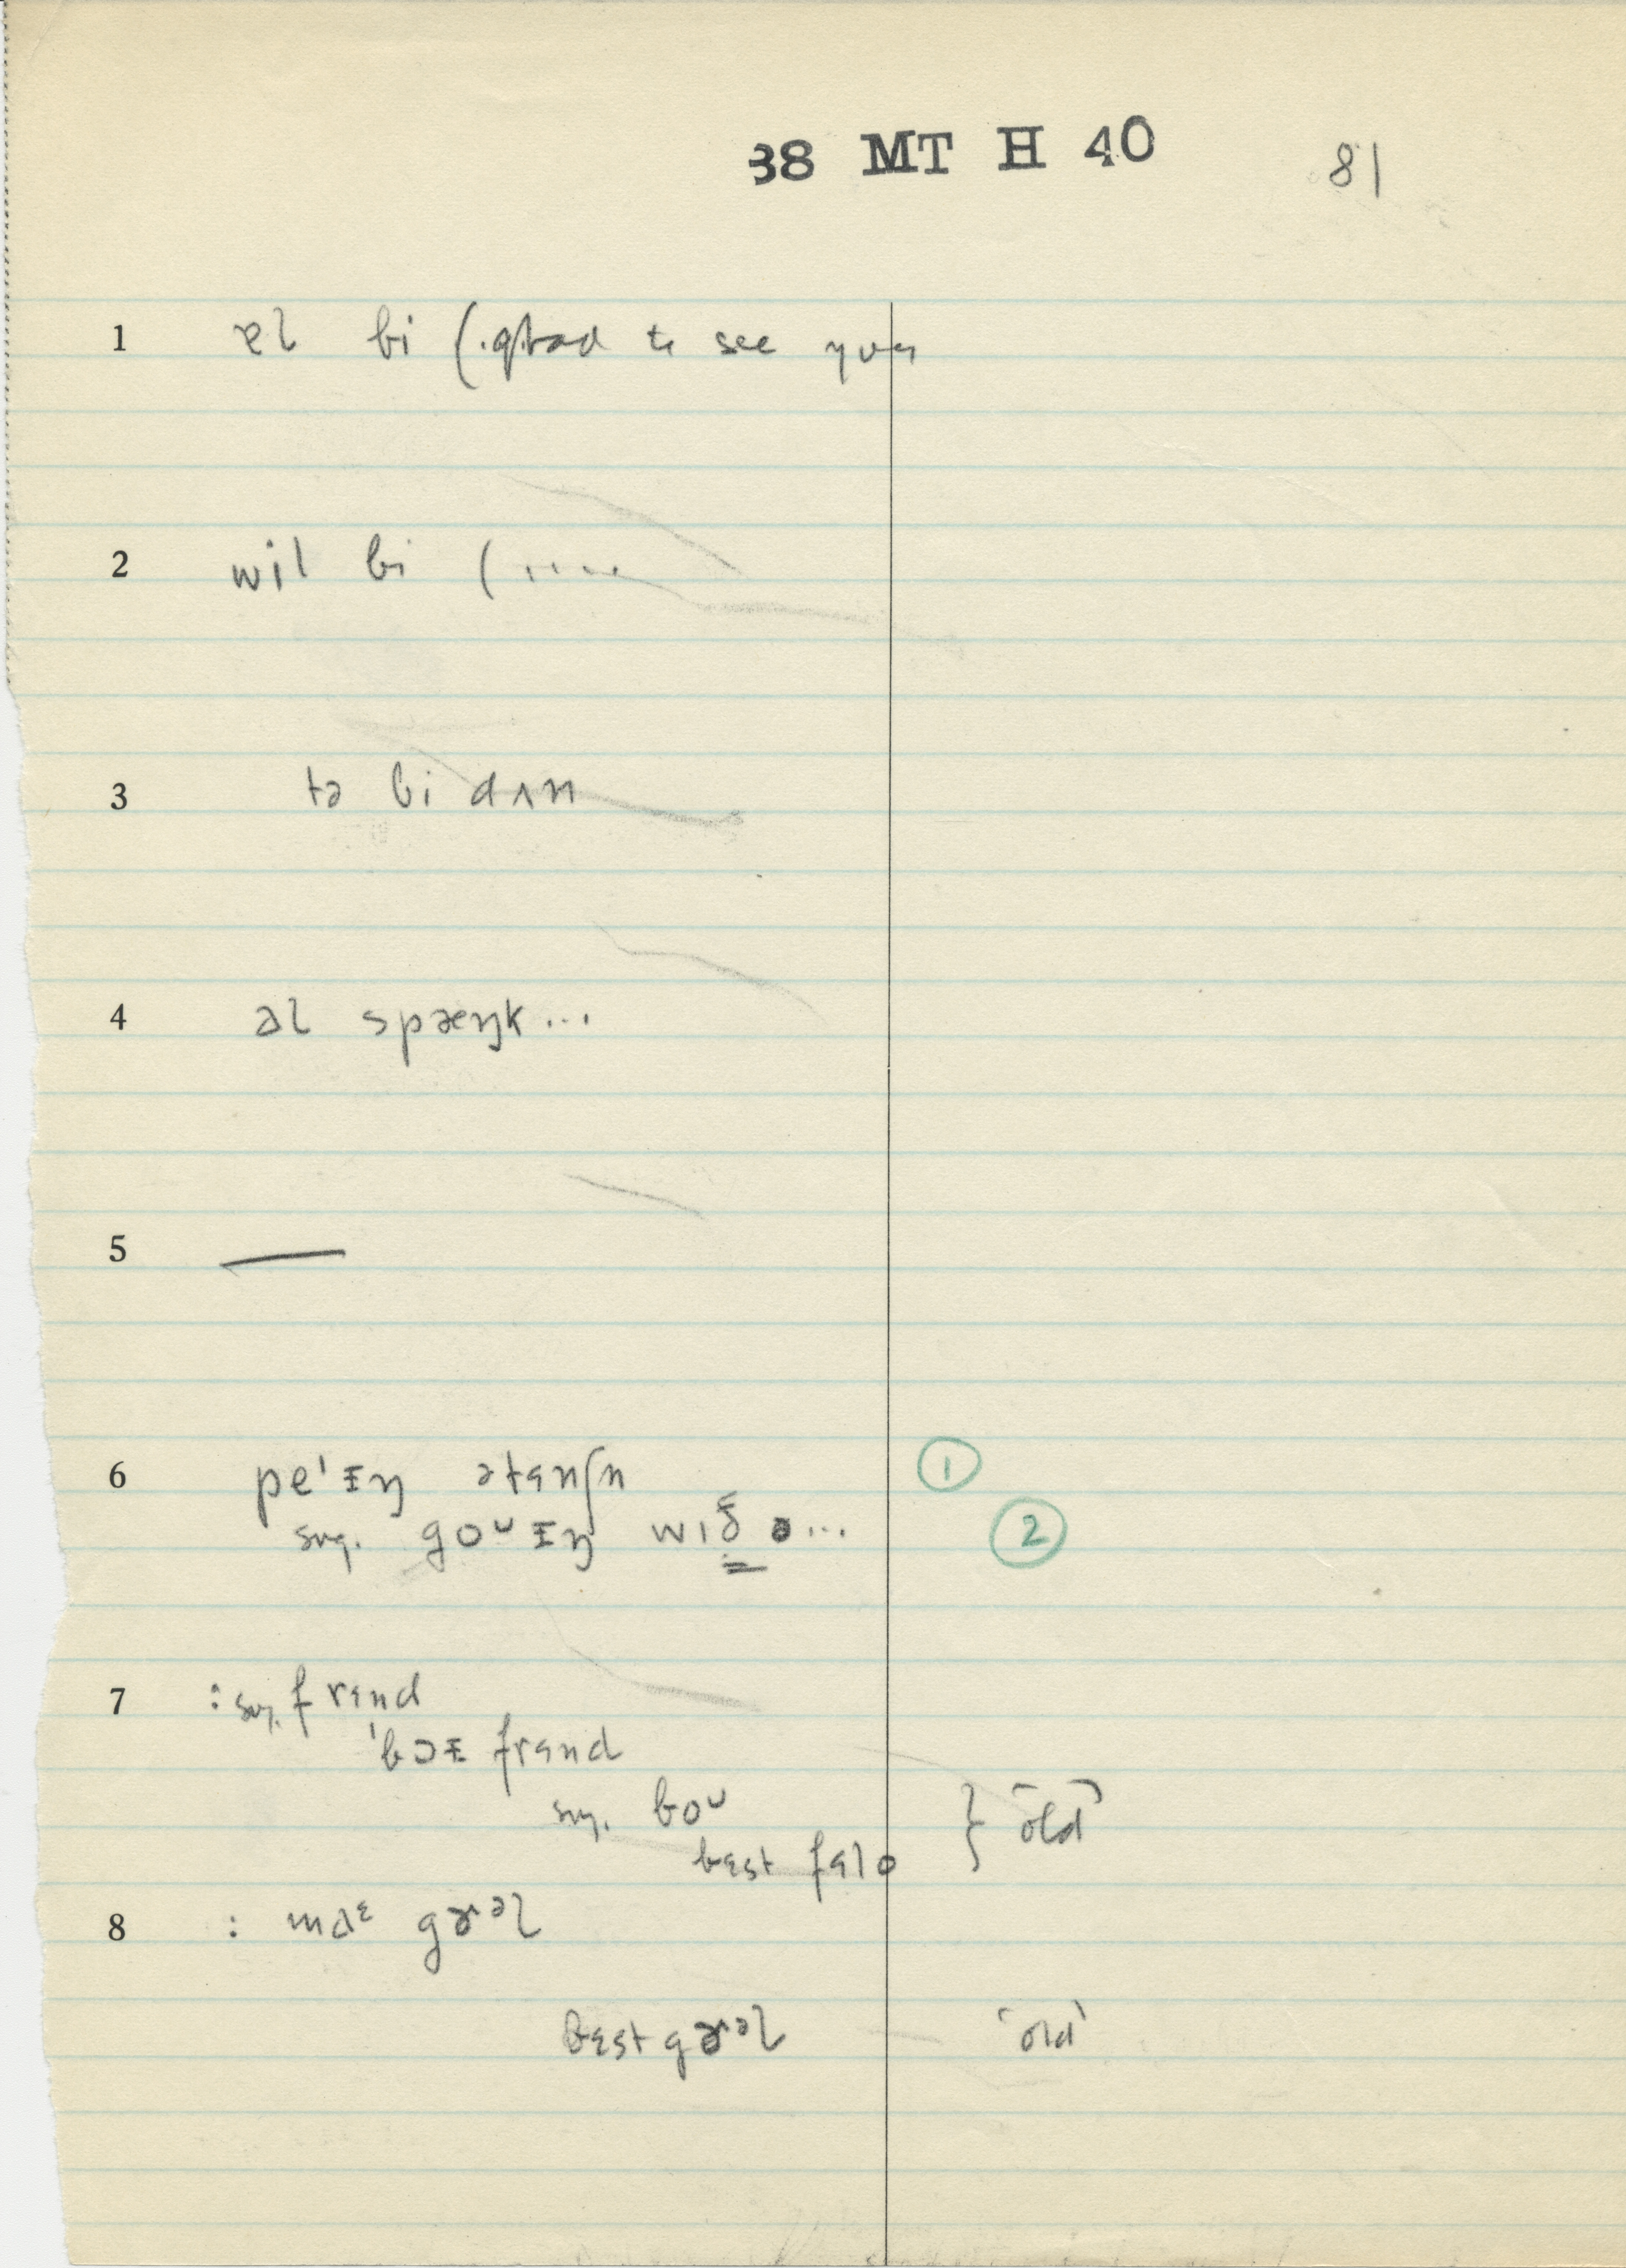 38 MT H 40 81
1 ɐl bi (.glad to see you
2 wil bi (.....
3 tə bi dʌn
4 əl spæŋk...
5 —
6 pe'ɪŋ ətɛnʃn ①
sug. goᴜɪŋ wɪð ə... ②
7 : sug. frɛnd
'bɔɪ frɛnd
sug. boᴜ
bɛst fɛlo } 'old'
8 : maᵋ gɚᵊl
bɛst gɚᵊl 'old'